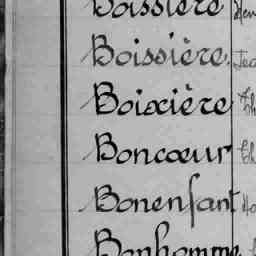 Boissière
Boissière.
Boixière
Boncœur
Bonenfant
Bonhomme